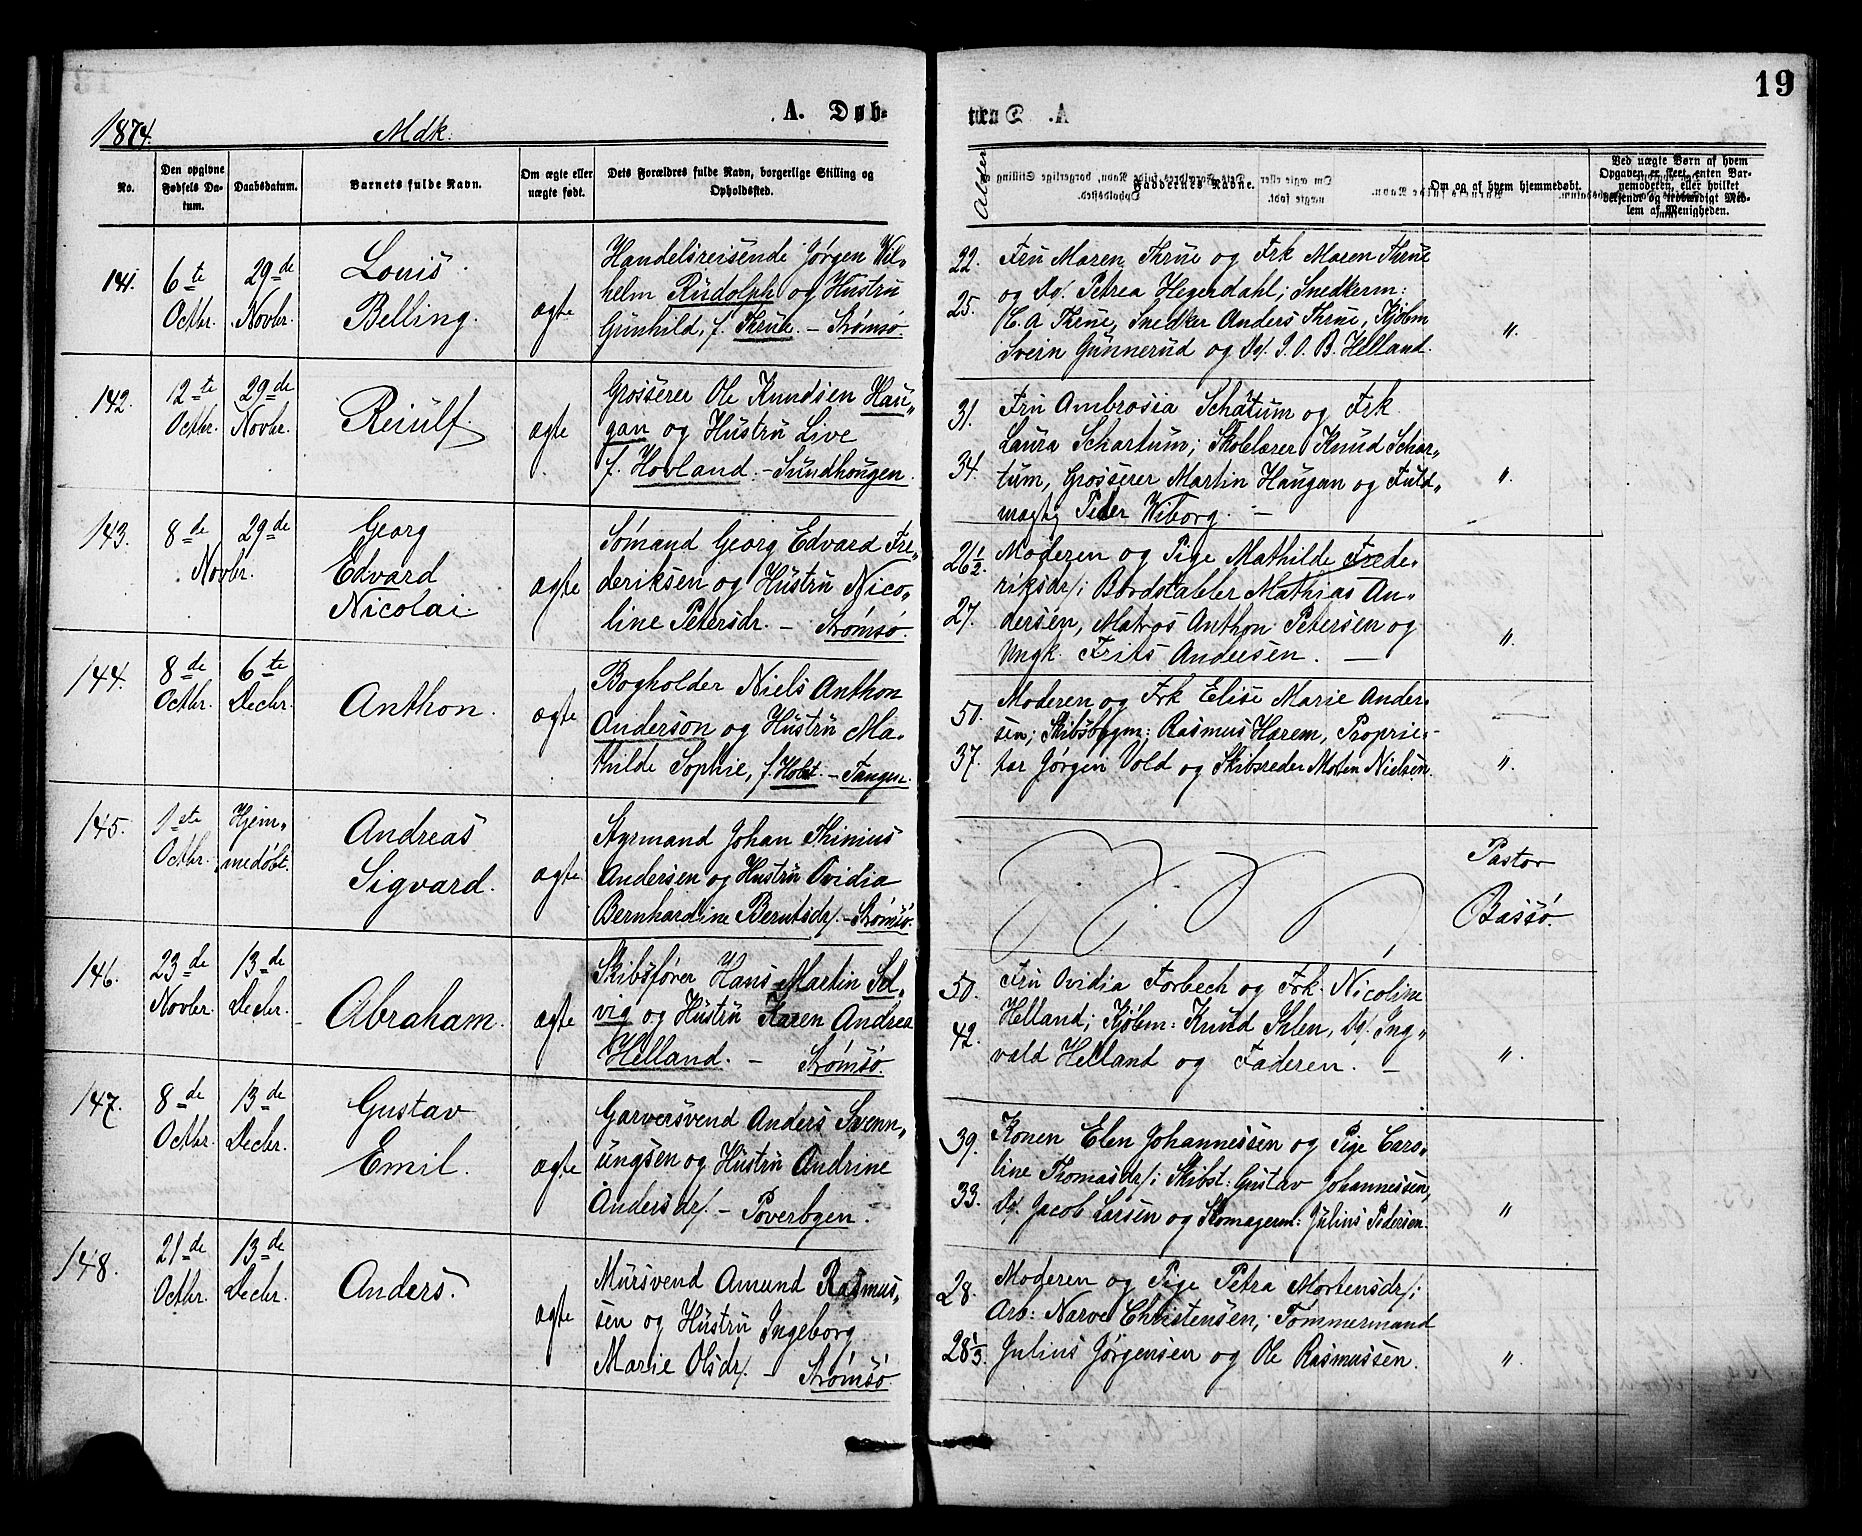 19
1874.
Mdk.
A. Døb-
No.
Den opgivne
Fødsels Da-
tum.
Daabsdatum.
Barnets fulde Navn.
Om ægte eller
uægte født.
Dets Forældres fulde Navn, borgerlige Stilling og
Opholdssted.
Alder
Faddernes Navne.
Om og af hvem hjemmedøbt.
Ved uægte Børn af hvem
Opgaven er skeet, enten Bar-
nemoderen, eller hvilket
lem af Menigheden.
141.
6te
Octbr.
29de
Novbr.
Louis
Belling.
ægte
Handelsreisende Jørgen Vil-
helm Rudolph og Hustru
Gunhild, f. Thrue. – Strømsø.
22.
25.
Fru Maren Thrue og Frk Maren Thrue
og Do. Petrea Hegerdahl; Snedkerm:
C. A Thrue, Snedker Anders Thrue, Kjøbm
Svein Gunnerud og Do. I. O. B. Helland.
"
142.
12te
Octbr.
29de
Novbr.
Reiulf.
ægte
Grosserer Ole Knudsen Hau-
gan og Hustru Live
f. Hovland. – Sundhougen.
31.
34.
Fru Ambrosia Schatum og Frk.
Laura Schartum; Skolelærer Knud Schar-
tum, Grosserer Martin Haugan og Fuld-
mægtig Peder Wiborg. –
"
143.
8de
29de
Novbr.
Georg
Edvard
Nicolai.
ægte
Sømand Georg Edvard Fre-
deriksen og Hustru Nico-
line Petersdr. – Strømsø.
26½.
27.
Moderen og Pige Mathilde Frede-
riksdr/; Bordstabler Mathias An-
dersen, Matros Anthon Petersen og
Ungk. Frits Andersen. –
"
144.
8de
Octbr.
6te
Decbr.
Anthon.
ægte
Bogholder Niels Anthon
Anderson og Hustru Ma-
thilde Sophie, f. Holst. – Tangen.
50.
37.
Moderen og Frk Elise Marie Ander-
sen; Skibsbygm: Rasmus Harem, Proprie-
tær Jørgen Vold og Skibsreder Morten Nielsen.
"
145.
1ste
Octbr.
Hjem-
medøbt.
Andreas
Sigvard.
ægte
Styrmand Johan Thinius
Andersen og Hustru Ovidia
Bernhardine Berntsdr/. – Strømsø.
Pastor
Bassø.
146.
23de
Novbr.
13de
Decbr.
Abraham.
ægte
Skibsfører Hans Martin Sel-
vig og Hustru Karen Andrea
Helland. – Strømsø.
50.
42.
Fru Ovidia Forbech og Frk. Nicoline
Helland; Kjøbm: Knud Ihlen, Do. Ing-
vald Helland og Faderen. –
"
147.
8de
Octbr.
13de
Decbr.
Gustav
Emil.
ægte
Garversvend Anders Svenn-
ungsen og Hustru Andrine
Andersdr/. – Poverbyen.
39.
33.
Konen Elen Johannessen og Pige Caro-
line Thomasdr/; Skibst: Gustav Johannessen,
Do. Jacob Larsen og Skomagerm: Julius Pedersen.
"
148.
21de
Octbr.
13de
Decbr.
Anders.
ægte
Mursvend Amund Rasmus-
sen og Hustru Ingeborg
Marie Olsdr/. – Strømsø.
28.
28⅓.
Moderen og Pige Petra Mortensdr/;
Arb: Narve Christensen, Tømmermand
Julius Jørgensen og Ole Rasmussen.
"